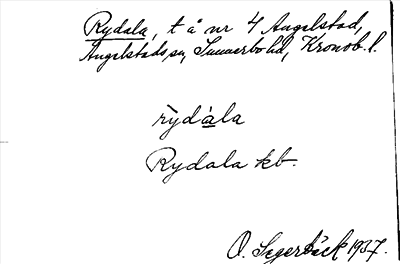 Rydala, t å nr 4 Angelstad,
Angelstads sn, Sunnerbo hd, Kronob. l.
rỳdá̱la
Rydala kb.
O. Segerbäck 1937.